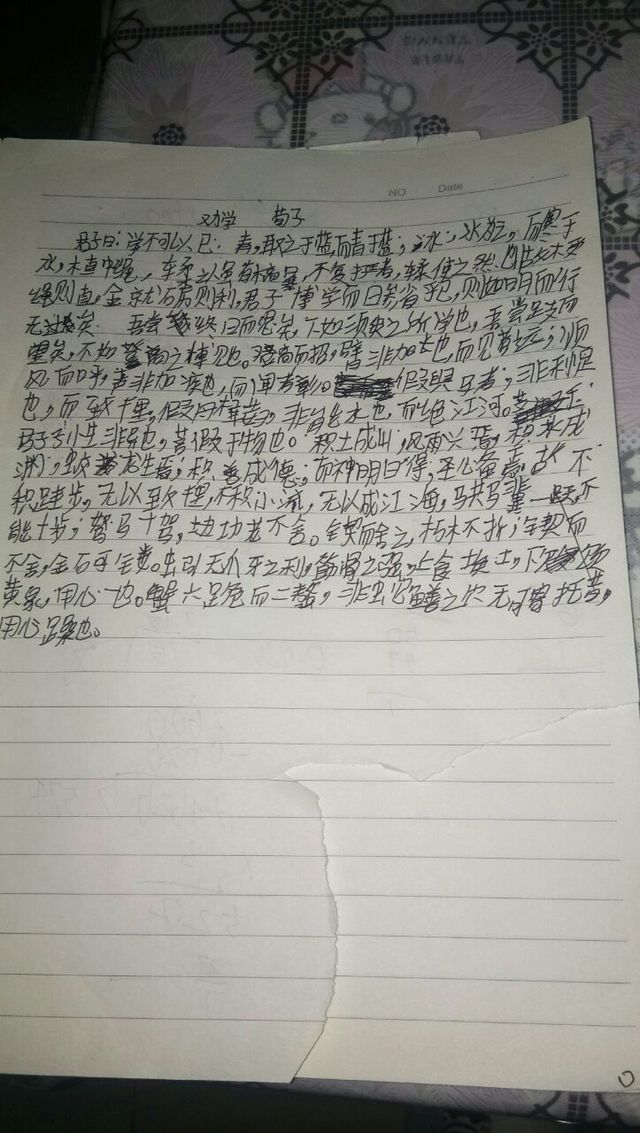 TENNIS
NO Date
劝学 荀子
君子曰:学不可以已。青,取之于蓝,而青于蓝;冰,水为之,而寒于
水,木直中绳,𫐓以为轮,虽有槁暴,不复挺者,𫐓使之然。故木受
绳则直,金就砺则利,君子博学而日参省乎己,则知明而行
无过矣。吾尝终日而思矣,不如须臾之所学也,吾尝跂而
望矣,不如登高之博见也。登高而招,臂非加长也,而见者远;顺
风而呼,声非加疾也,而闻者彰。假舆马者;非利足
也,而致千里,假舟楫者,非能水也,而绝江河。
君子生非异也,善假于物也。积土成山,风雨兴焉,积水成
渊,蛟龙生焉;积善成德,而神明自得,圣心备焉。故不
积跬步,无以致千里,不积小流,无以成江海,骐骥一跃,不
能十步;驽马十驾,功不舍。锲而舍之,朽木不折;锲而
不舍,金石可镂。蚓无爪牙之利,筋骨之强,上食埃土,下
黄泉,用心一也。蟹六足而二螯,非蛇鳝之穴无可寄托者,
用心躁也。